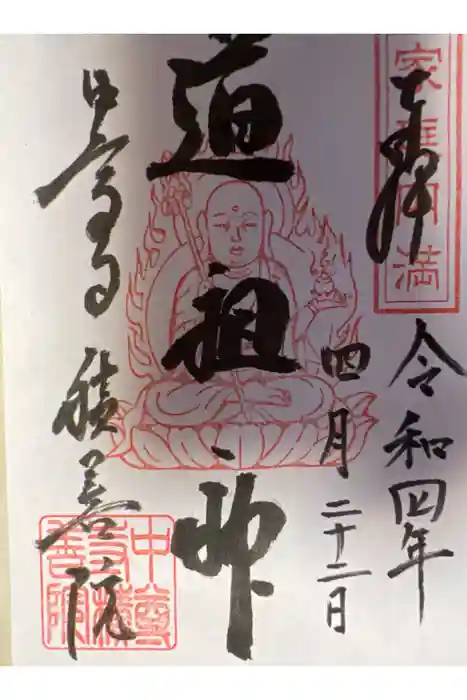 家庭円満
奉拝
令和四年
四月二十二日
道祖神
中尊寺 積善院
中尊
寺積
善院